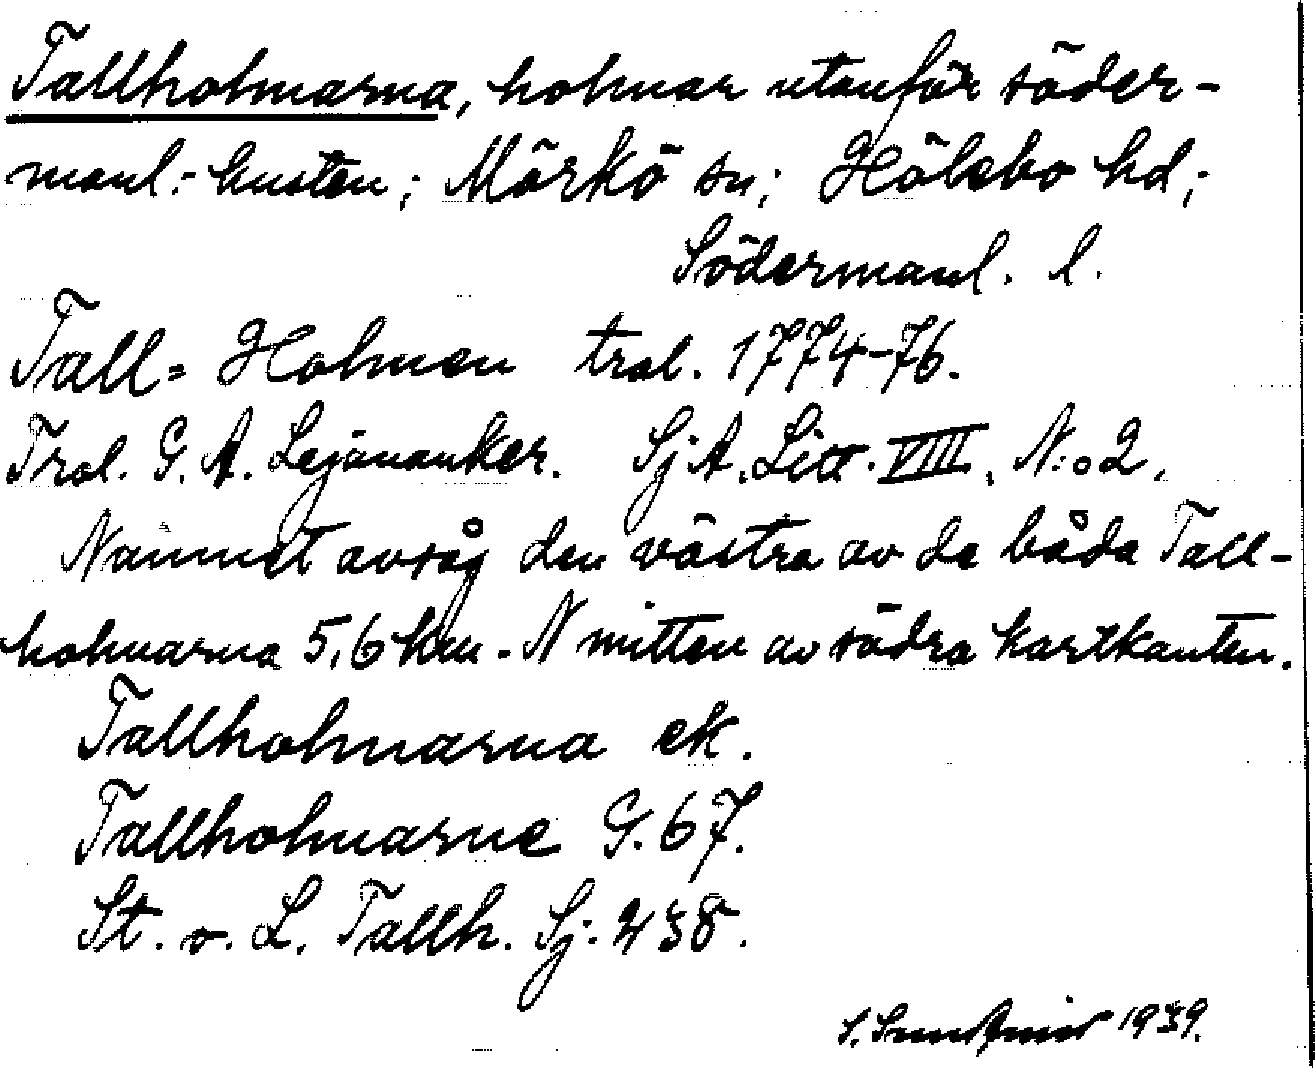 Tallholmarna, holmar utanför söder-
manl. kusten; Mörkö sn; Hölebo hd;
Södermanl. l.
Tall= Holmen trol. 1774-76.
Trol. G. A. Lejonanker. SjA. Litt. VIII, N:o 2.
Namnet avsåg den västra av de båda Tall-
holmarna 5,6 km. N mitten av södra kartkanten.
Tallholmarna ek.
Tallholmarne G. 67.
St. o. L. Tallh. Sj. 438.
S. 1939.